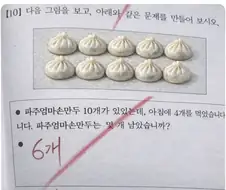 [10] 다음 그림을 보고, 아래와 같은 문제를 만들어 보시오.
• 파주엄마손만두 10개가 있었는데, 아침에 4개를 먹었습니다
니다. 파주엄마손만두는 몇 개 남았습니까?
• 6개